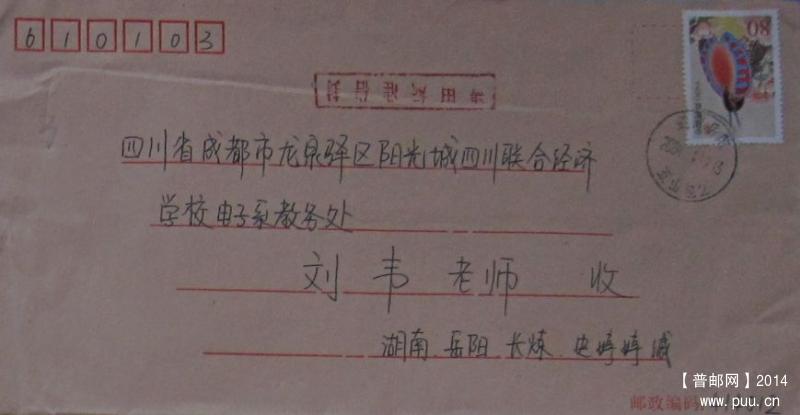 610103
08
四川省成都市龙泉驿区阳光城四川联合经济
学校电子系教务处
刘韦老师 收
湖南 岳阳 长炼 史婷婷 缄
邮政编码
【普邮网】2014
www.puu.cn